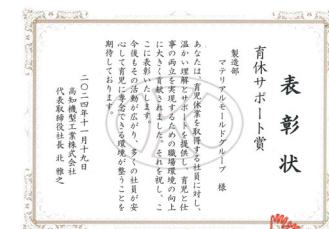 表彰状
育休サポート賞
製造部
マテリアルモールドグループ 様
あなたは、育児休業を取得する社員に対し、
温かい理解とサポートを提供し、育児と仕
事の両立を実現するための職場環境の向上
に大きく貢献されました。それを祝し、こ
こに表彰いたします。
今後もその活動が広がり、多くの社員が安
心して育児に専念できる環境が整うことを
期待しております。
二〇二四年十一月十九日
高知機型工業株式会社
代表取締役社長 北 雅之